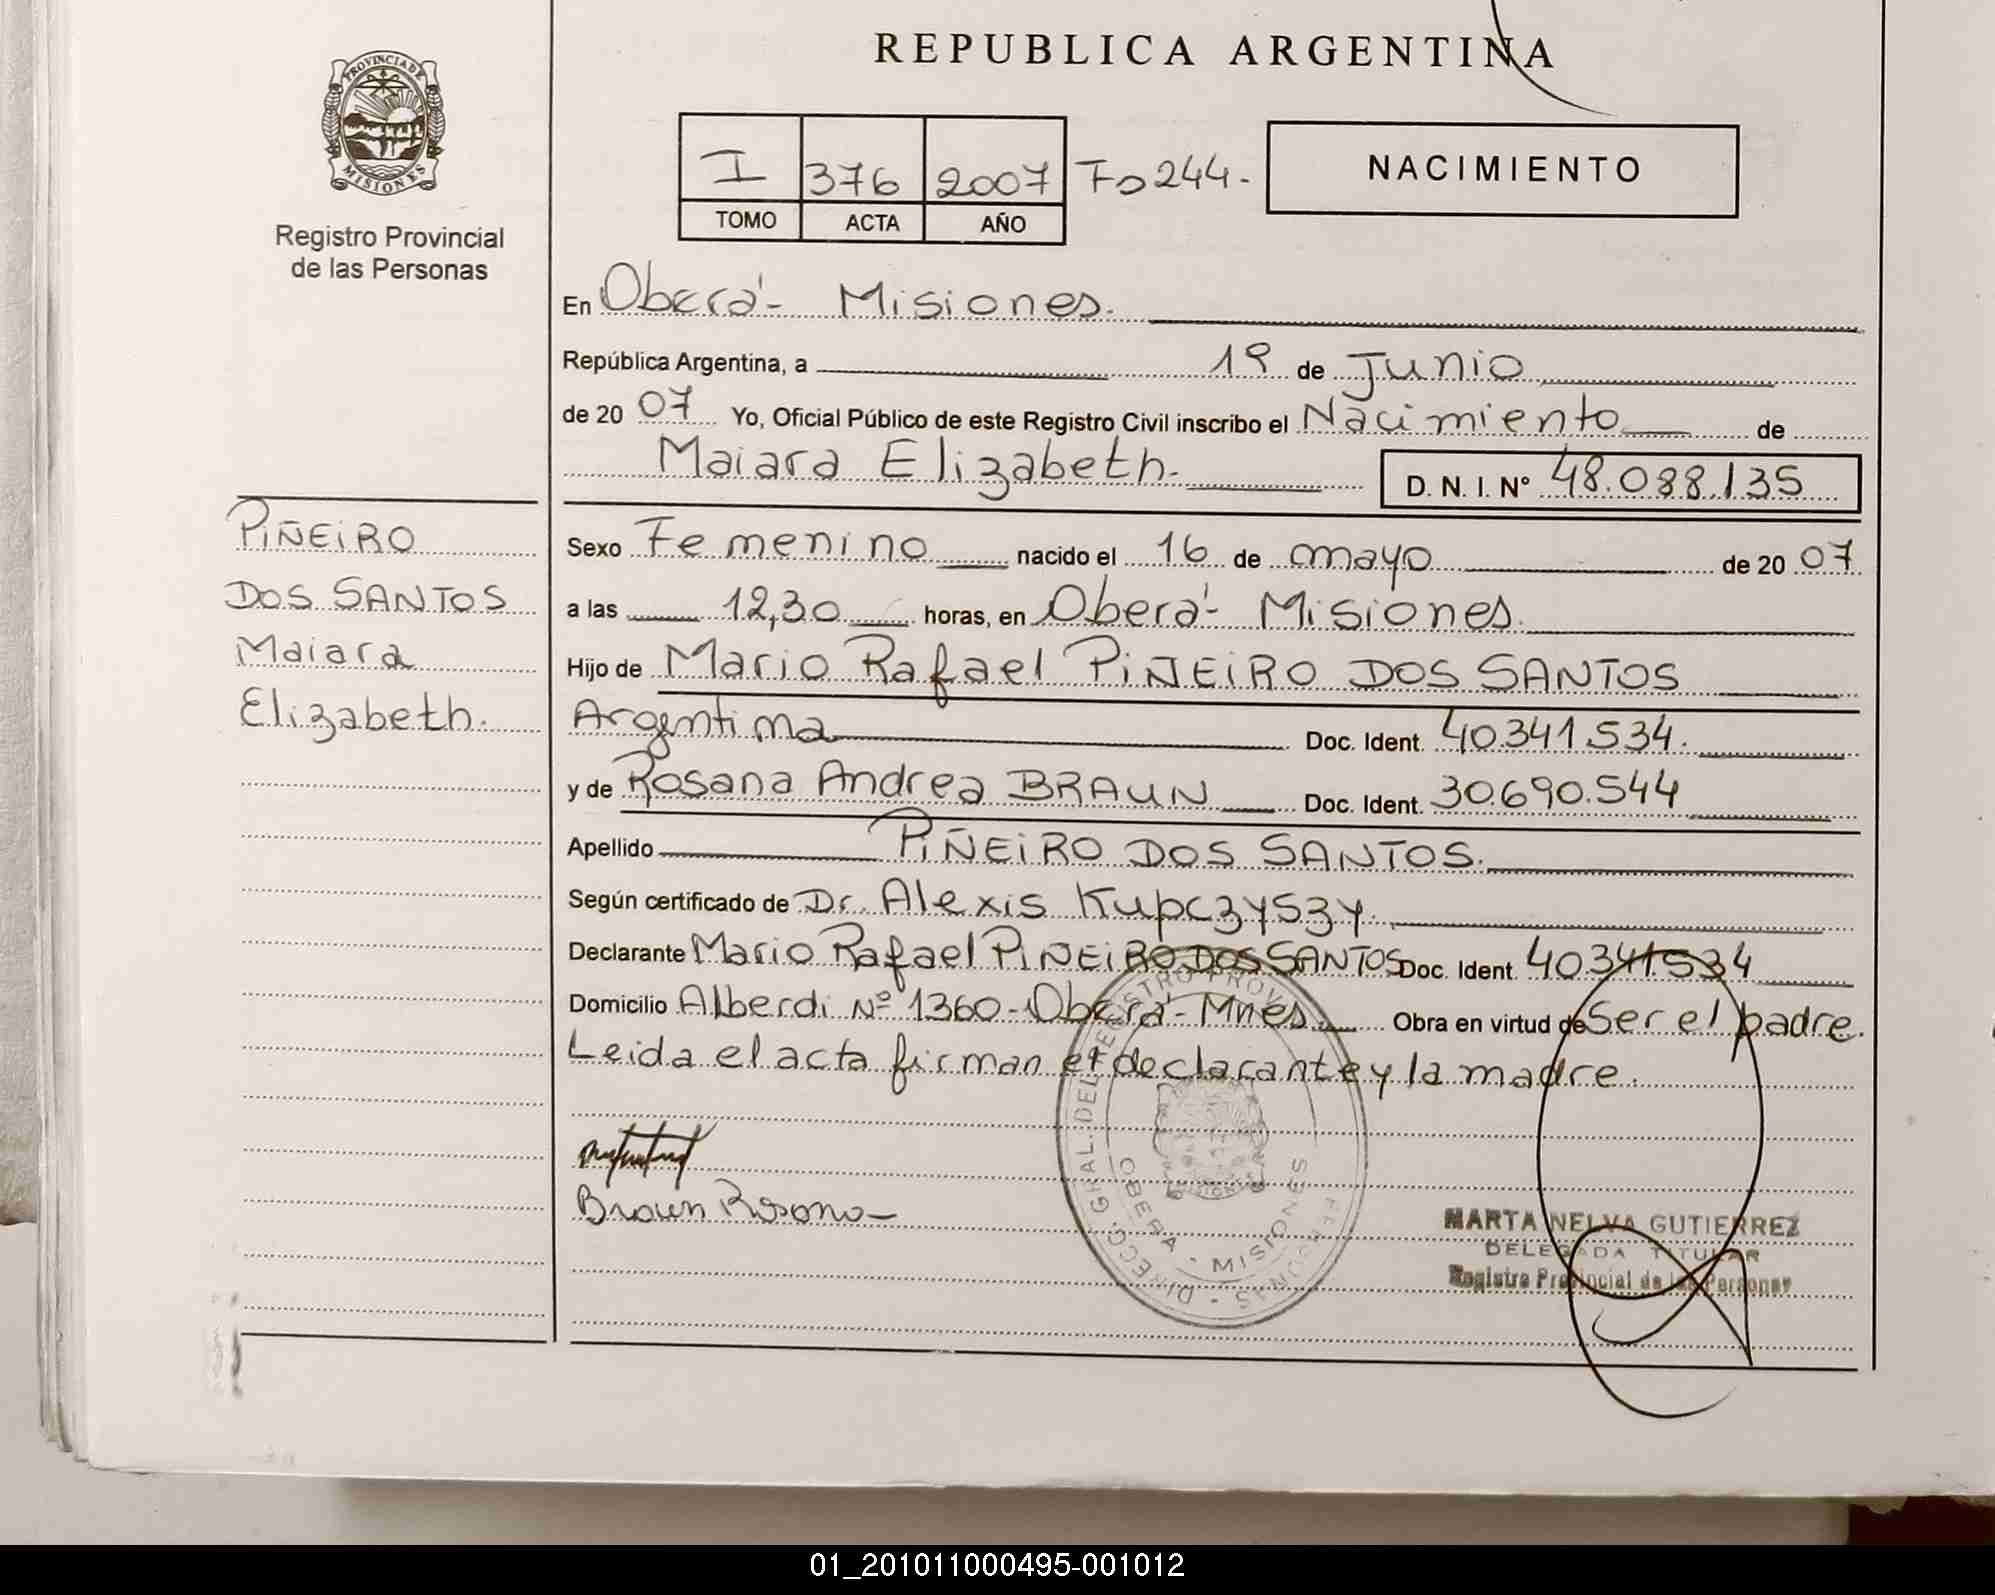 REPUBLICA ARGENTINA
PROVINCIA DE
MISIONES
Registro Provincial
de las Personas
I 376 2007 Fo 244.-
TOMO ACTA AÑO
NACIMIENTO
En Oberá - Misiones.
República Argentina, a 19 de Junio
de 2007 Yo, Oficial Público de este Registro Civil inscribo el Nacimiento de
Maiara Elizabeth. D. N. I. Nº 48.088.135
PIÑEIRO
DOS SANTOS
Maiara
Elizabeth.
Sexo Femenino nacido el 16 de mayo de 2007
a las 12,30 horas, en Oberá - Misiones.
Hijo de Mario Rafael PIÑEIRO DOS SANTOS
Argentina Doc. Ident. 40.341.534.
y de Rosana Andrea BRAUN Doc. Ident. 30.690.544
Apellido PIÑEIRO DOS SANTOS.
Según certificado de Dr. Alexis Kupczyszy.
Declarante Mario Rafael PIÑEIRO DOS SANTOS Doc. Ident. 40.341.534
Domicilio Alberdi Nº 1360 - Oberá - Mnes. Obra en virtud de Ser el padre.
Leida el acta firman el declarante y la madre.
Braun Rosana
OBERA - MISIONES
MARTA NELVA GUTIERREZ
DELEGADA TITULAR
Registro Provincial de las Personas
01_201011000495-001012